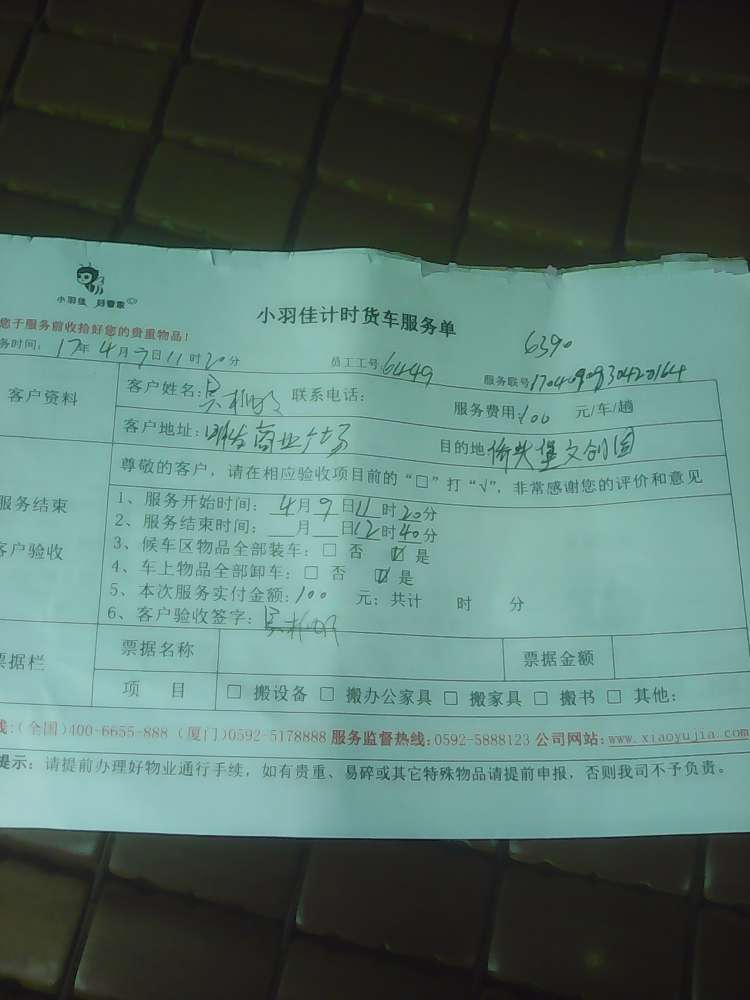 小羽佳 好管家
小羽佳计时货车服务单
您于服务前收拾好您的贵重物品!
6390
务时间: 17年4月9日11时20分 员工工号:6449 服务联号
客户资料
客户姓名:吴 联系电话: 服务费用:100 元/车/趟
客户地址:明发商业广场 目的地 桥头堡文创园
尊敬的客户,请在相应验收项目前的“□”打“√”,非常感谢您的评价和意见
服务结束
客户验收
1、服务开始时间: 4月9日11时20分
2、服务结束时间:___月___日12时40分
3、候车区物品全部装车:□ 否 ☑ 是
4、车上物品全部卸车:□ 否 ☑ 是
5、本次服务实付金额:100 元;共计 时 分
6、客户验收签字:吴
票据栏
票据名称 票据金额
项 目 □ 搬设备 □ 搬办公家具 □ 搬家具 □ 搬书 □ 其他:
线:(全国)400-6655-888 (厦门)0592-5178888 服务监督热线:0592-5888123 公司网站:www.xiaoyujia.com
提示:请提前办理好物业通行手续,如有贵重、易碎或其它特殊物品请提前申报,否则我司不予负责。